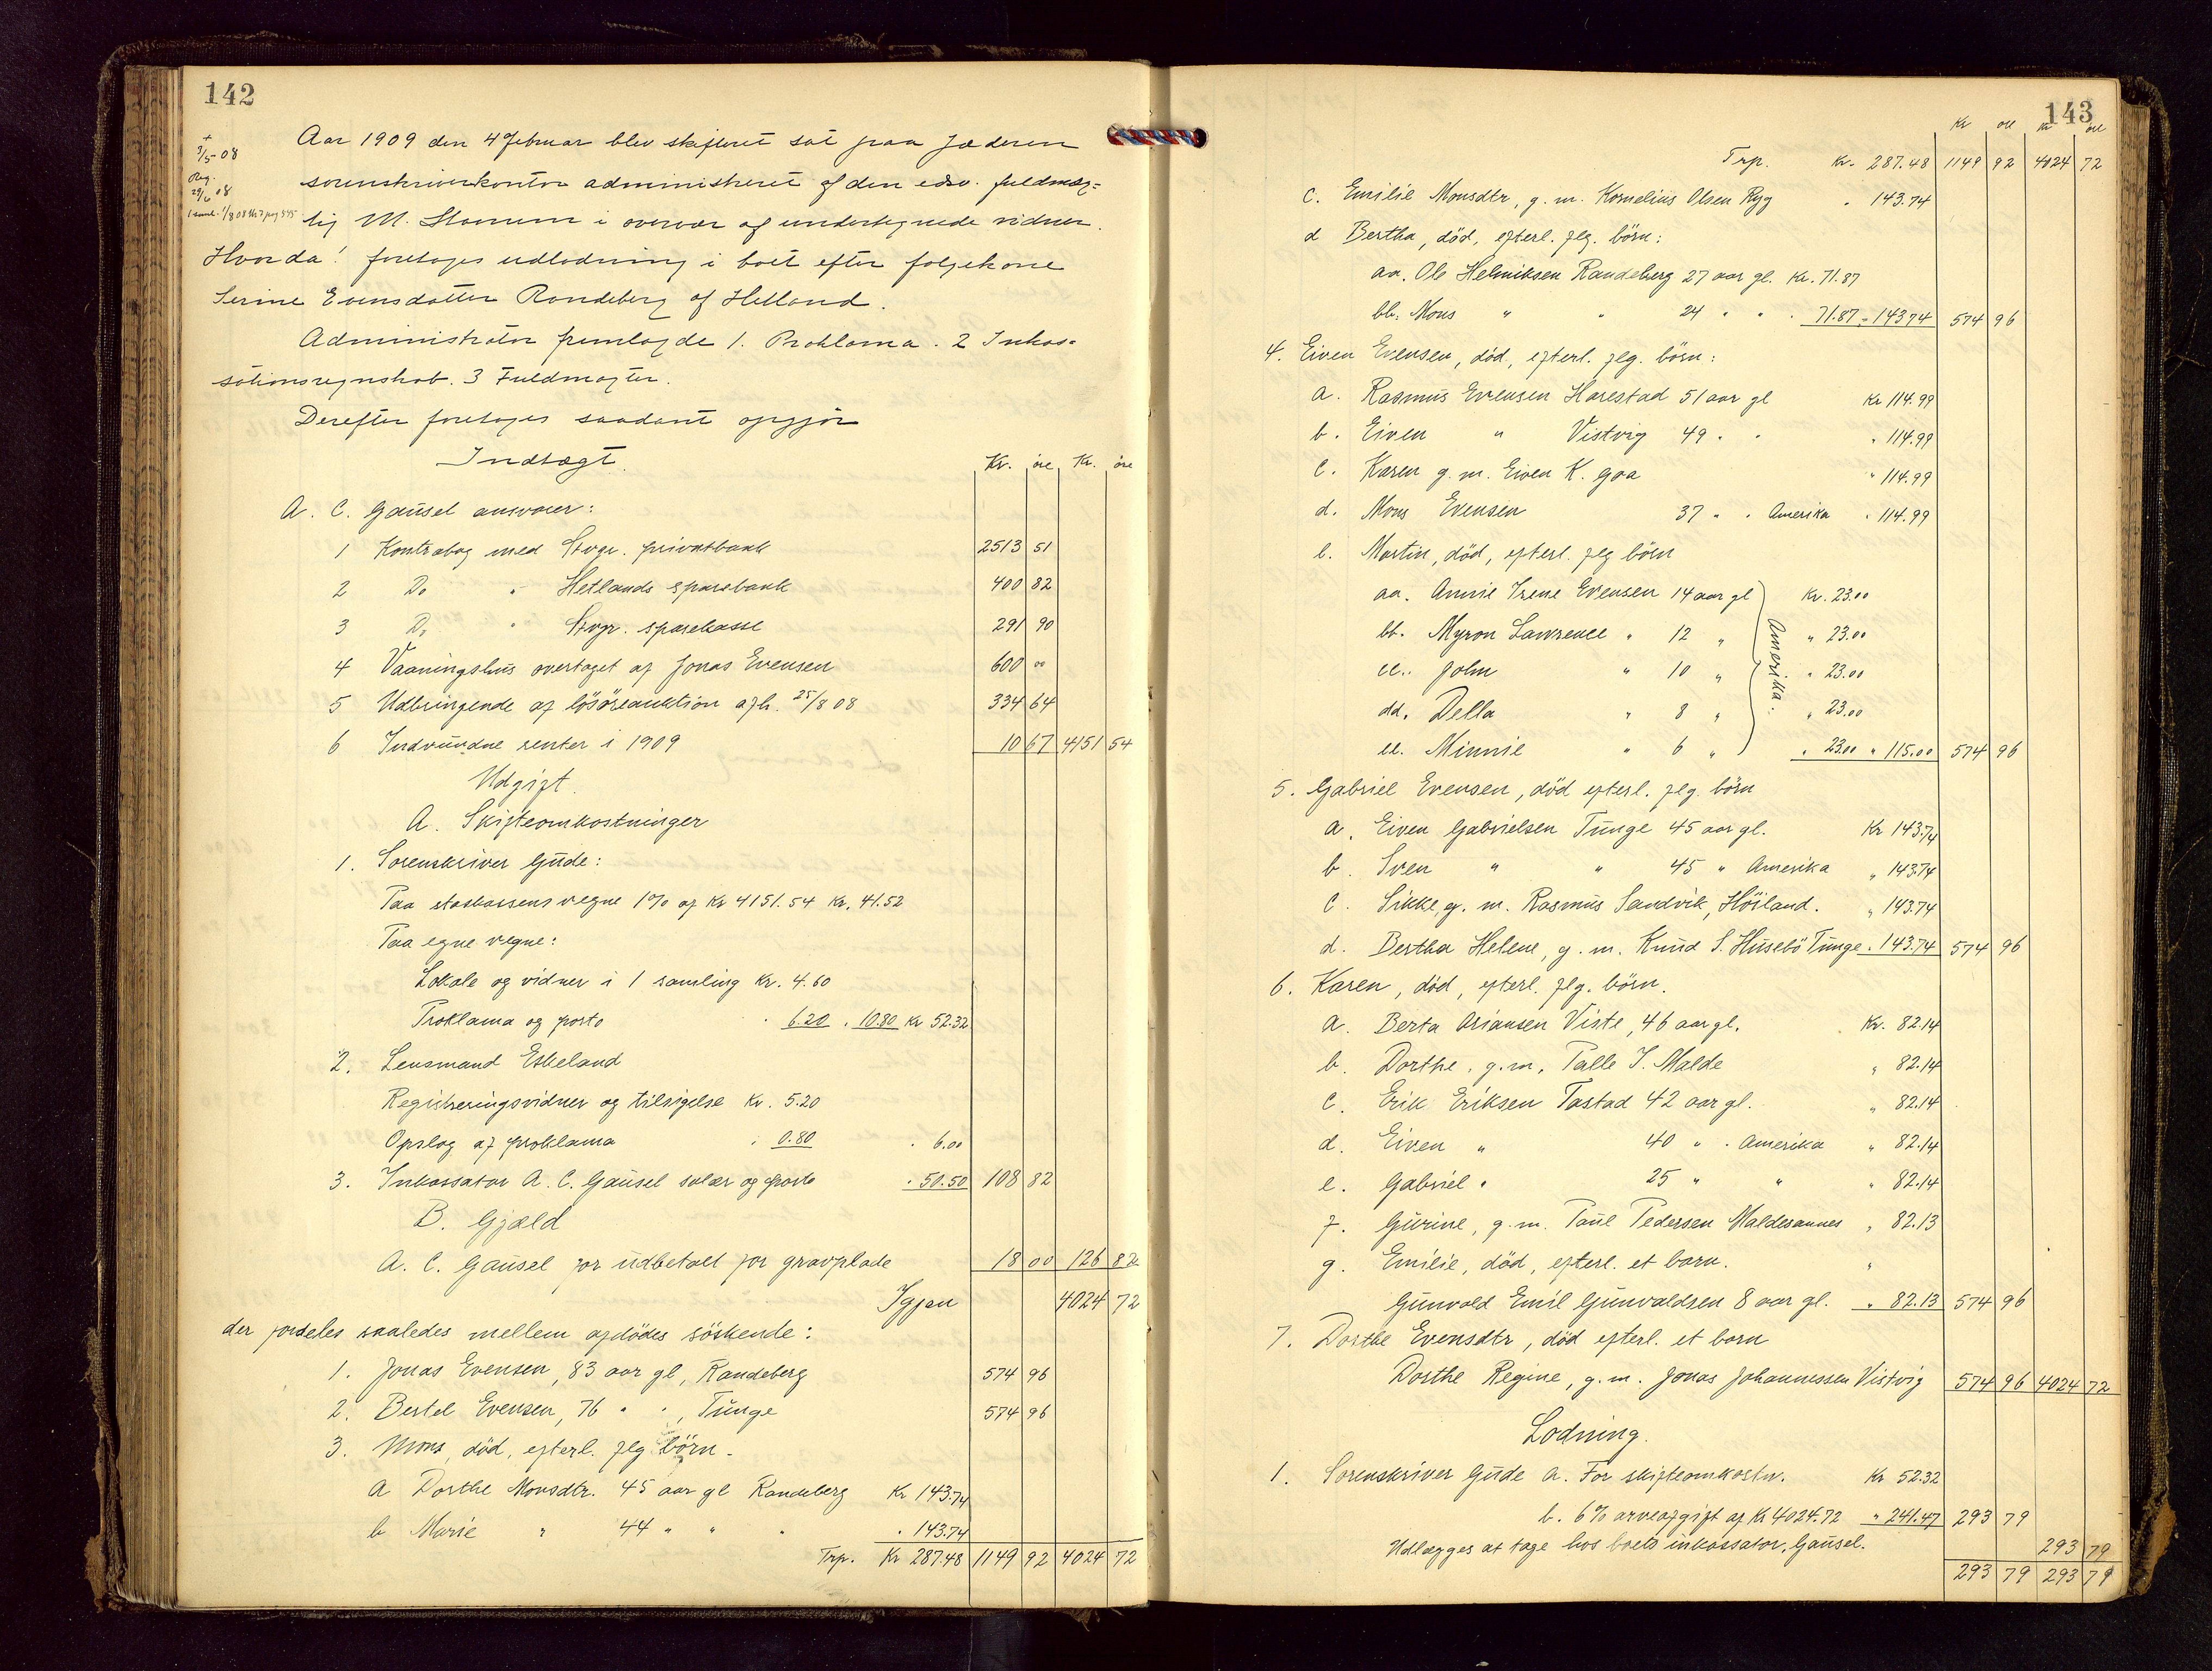 142
+
3/5-08
Reg.
29/6 08
Aar 1909 den 4 Februar blev skifteret sat paa Jæderen
sorenskriverkontor administreret af den edsv. fuldmæg-
tig M. Stamnem i overvær af undertegnede vidner.
Hvorda! foretoges udlodning i boet efter følgekone
Serine Evensdatter Randeberg af Hetland.
Administrator fremlagde 1. Proklama. 2 Inkas-
sationsregnskab. 3 Fuldmagter.
Derefter foretoges saadant opgjör
Indtægt. Kr. öre Kr. öre
A. C. Gausel ansvarer:
1 Kontrabog med Stvgr. privatbank 2513 51
2 Do " Hetlands sparebank 400 82
3 Do " Stvgr. sparekasse 291 90
4 Vaaningshus overtaget af Jonas Evensen 600 00
5 Udbringende af lösöreauktion afh. 25/8 08 334 64
6 Indvundne renter i 1909 10 67 4151 54
Udgift.
A. Skifteomkostninger
1. Sorenskriver Gude:
Paa statskassens vegne 1% af Kr 4151.54 Kr. 41.52
Paa egne vegne:
Lokale og vidner i 1 samling Kr. 4.60
Proklama og porto " 6.20 " 10.80 Kr 52.32
2. Lensmand Eskeland
Registreringsvidner og tilsigelse Kr. 5.20
Opslag af proklama " 0.80 " 6.00
3. Inkassator A. C. Gausel salær og porto " 50.50 108 82
B. Gjæld
A. C. Gausel for udbetalt for gravplade 18 00 126 82
Igjen 4024 72
der fordeles saaledes mellem afdödes söskende:
1. Jonas Evensen, 83 aar gl, Randeberg 574 96
2. Bertel Evensen, 76 " " , Tunge 574 96
3. Mons, död, efterl. flg. börn.
a Dorthe Monsdtr. 45 aar gl Randeberg Kr 143.74
b Marie " 44 " " " " 143.74
Trp. Kr 287.48 1149 92 4024 72
143
Kr öre Kr öre
Trp. Kr. 287.48 1149 92 4024 72
c. Emilie Monsdtr, g. m. Kornelius Olsen Ryg " 143.74
d Bertha, död, efterl. flg. börn:
aa. Ole Helmiksen Randeberg 27 aar gl. Kr. 71.87
bb. Mons " " 24 " " " 71.87 " 143.74 574 96
4. Eiven Evensen, död, efterl. flg. börn:
a. Rasmus Evensen Harestad 51 aar gl Kr 114.99
b. Eiven " Vistvig 49 " " " 114.99
c. Karen g. m. Eiven K. Goa " 114.99
d. Mons Evensen 37 " " Amerika " 114.99
e. Martin, död, efterl. flg börn
aa. Annie Irene Evensen 14 aar gl Kr. 23.00
bb. Myron Lawrence " 12 " " 23.00
cc. John " 10 " " 23.00
dd. Della " 8 " " 23.00
ee. Minnie " 6 " " 23.00 " 115.00 574 96
Amerika.
5. Gabriel Evensen, död efterl. flg. börn
a. Eiven Gabrielsen Tunge 45 aar gl. Kr 143.74
b. Sven " " 45 " Amerika " 143.74
c. Sikke, g. m. Rasmus Sandvik, Höiland. " 143.74
d. Bertha Helene, g. m. Knud S. Husebö Tunge " 143.74 574 96
6. Karen, död, efterl. flg. börn.
a. Berta Asiansen Viste, 46 aar gl. Kr. 82.14
b. Dorthe, g. m. Talle T. Malde " 82.14
c. Erik Eriksen Tastad 42 aar gl. " 82.14
d. Eiven " 40 " " Amerika " 82.14
e. Gabriel " 25 " " " 82.14
f. Gurine, g. m. Paul Pedersen Maldesannes " 82.13
g. Emilie, död, efterl. et barn. "
Gunvald Emil Gunvaldsen 8 aar gl. " 82.13 574 96
7. Dorthe Evensdtr, död efterl. et barn
Dorthe Regine, g. m. Jonas Johannessen Vistvig 574 96 4024 72
Lodning.
1. Sorenskriver Gude a. For skifteomkostn. Kr 52.32
b. 6% arveafgift af Kr 4024.72 " 241.47 293 79
Udlægges at tage hos boets inkassator, Gausel. 293 79
293 79 293 79